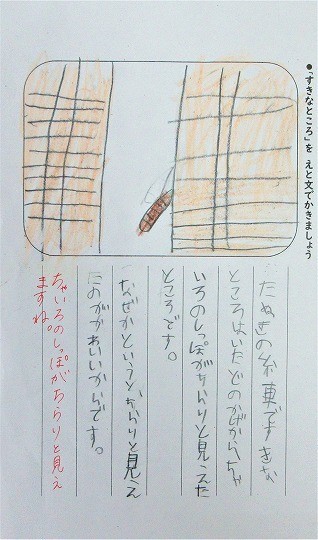 ●「すきなところ」を えと文でかきましょう
たぬきの糸車ですきな
ところはいたどのかげからちゃ
いろのしっぽがちらりと見えた
ところです。
なぜかというとちらりと見え
たのがかわいいからです。
ちゃいろのしっぽがちらりと見え
ますね。